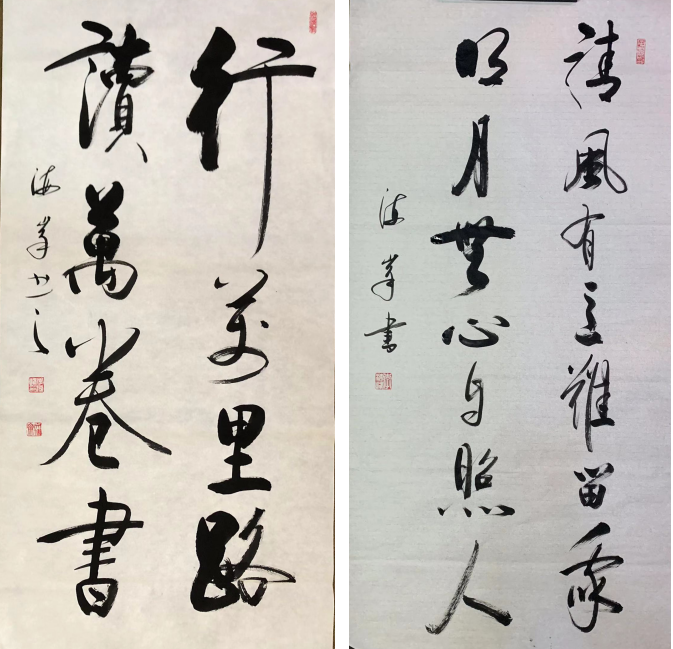 行萬里路
讀萬卷書
海峯书之
清風有意難留我
明月無心自照人
海峯書